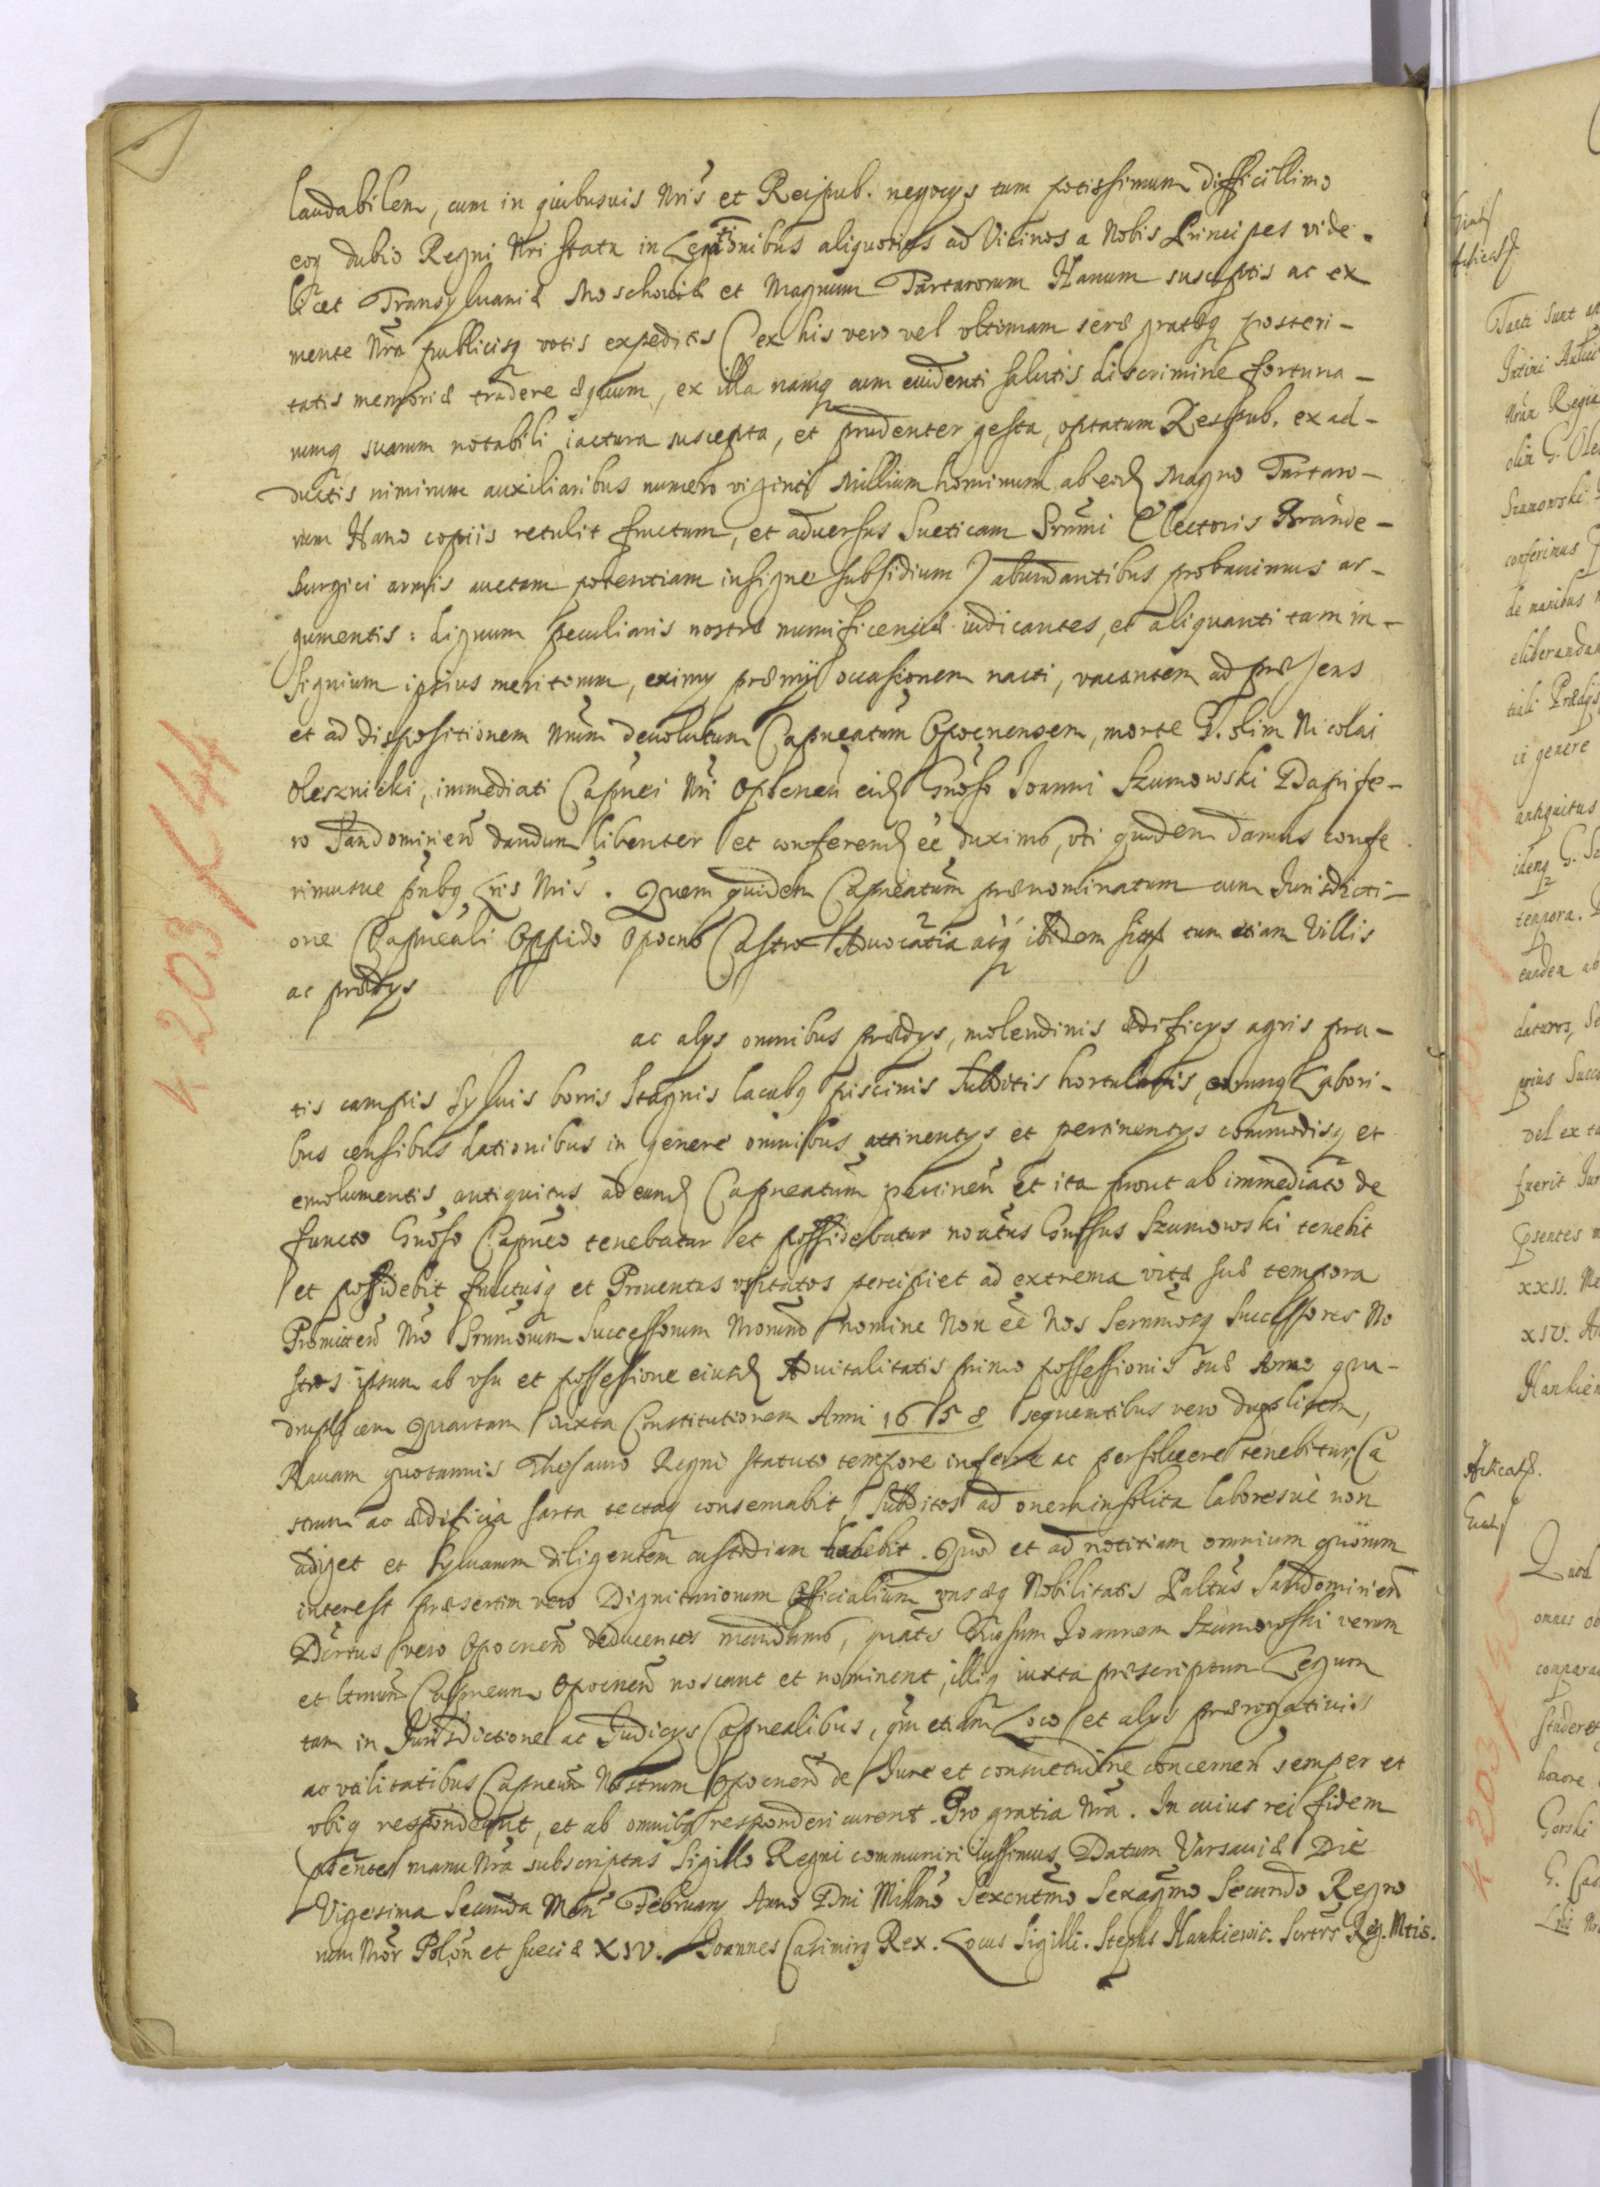 laudabilem, cum in quibusuis Nris et Reipub. negocys tum potissimum difficillimo
eoq dubio Regni Nri statu in Legationibus aliquoties ad Vicinos a Nobis Principes vide-
licet Transyluaniæ Moschouiæ et Magnum Tartarorum Hanum susceptis ac ex
mente Nra publicisq votis expeditis (ex his vero vel vltimam seræ grateq posteri-
tatis memoriæ tradere æquum, ex illa namq cum euidenti salutis discrimine fortuna-
rumq suarum notabili iactura suscepta, et prudenter gesta, optatum Respub. ex ad-
ductis nimirum auxiliaribus numero viginti Millium hominum ab eod Magno Tartaro-
rum Hano copiis retulit fructum, et aduersus Sueticam Srmi Electoris Brande-
burgici armis auctam potentiam insigne subsidium) abundantibus probauimus ar-
gumentis: dignum peculiaris nostræ munificenciæ iudicantes, et aliquanti tam in-
signium ipsius meritorum, eximy præmij occasionem nacti, vacantem ad præsens
et ad dispositionem Nram deuolutum Capneatum Opocnensem, morte G. olim Nicolai
Olesznicki, immediati Capnei Nri Opocnen eid Gnoso Joanni Szumowski Dapife-
ro Sandomirien dandum libenter et conferend ee duximo, vti quidem damus confe
rimusue pntbq Lris Nris. Quem quidem Capneatum prænominatum cum Jurisdicti-
one Capneali Oppido Opocno Castro Aduocatia atq ibidem sita tum etiam Villis
ac prædys
ac alys omnibus prædys, molendinis ædificys agris pra-
tis campis syluis borris stagnis lacubq piscinis subditis hortulanis, eorumq Labori-
bus censibus dationibus in genere omnibus attinentys et pertinentys commodisq et
emolumentis antiquitus ad eund Capneatum pertinen et ita prout ab immediato de
functo Gnoso Capneo tenebatur et possidebatur noatus Gnsus Szumowski tenebit
et possidebit fructusq et Prouentus vsitatos percipiet ad extrema vitæ suæ tempora
Promitten Nro Srnmorum Successorum Nrorumq nomine Non ee Nos Sernmosq Successores No
stros ipsum ab vsu et possessione eiusd Aduitalitatis primo possessionis suæ Anno qua-
druplicem Quartam iuxta Constitutionem Anni 1658 sequentibus vero duplicem,
Rauam quotannis Thesauro Regni statuto tempore inferre ac persoluere tenebitur, Ca
strum ac ædificia sarta tectaq conseruabit, subditos ad onera insolita laboresuè non
adiget et syluarum diligentem custodiam habebit. Quod et ad notitiam omnium quorum
interest præsertim vero Dignitariorum Officialium vnsæq Nobilitatis Paltus Sandomirien
Dirtus vero Opocnen deducentes mandamo, quats Gnosum Joannem Szumowski verum
et ltmum Capneum Opocnen noscant et nominent, illiq iuxta præscriptum Legum
tam in Jurisdictione ac Judicys Capnealibus, qm etiam Loco et alys prærogatiuis
ac vtilitatibus Capneum Nostrum Opocnen de Jure et consuetudine concernen semper et
vbiq respondeant, et ab omnibq responderi curent. Pro gratia Nra. In cuius rei fidem
pntes manu Nra subscriptas Sigillo Regni communiri iussimus. Datum Varsauiæ Die
Vigesima Secunda Mens February Anno Dni Millmo Sexcntmo Sexagmo Secundo Regno
rum Nror Polon et Sueciæ XIV. Joannes Casimirq Rex. Locus Sigilli. Stephs Hankiewic. Scrtrs Reg. Mtis.
k 203/44